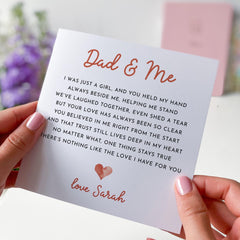 Dad & Me
I WAS JUST A GIRL, AND YOU HELD MY HAND
ALWAYS BESIDE ME, HELPING ME STAND
WE'VE LAUGHED TOGETHER, EVEN SHED A TEAR
BUT YOUR LOVE HAS ALWAYS BEEN SO CLEAR
YOU BELIEVED IN ME RIGHT FROM THE START
AND THAT TRUST STILL LIVES DEEP IN MY HEART
NO MATTER WHAT, ONE THING STAYS TRUE
THERE'S NOTHING LIKE THE LOVE I HAVE FOR YOU
love Sarah